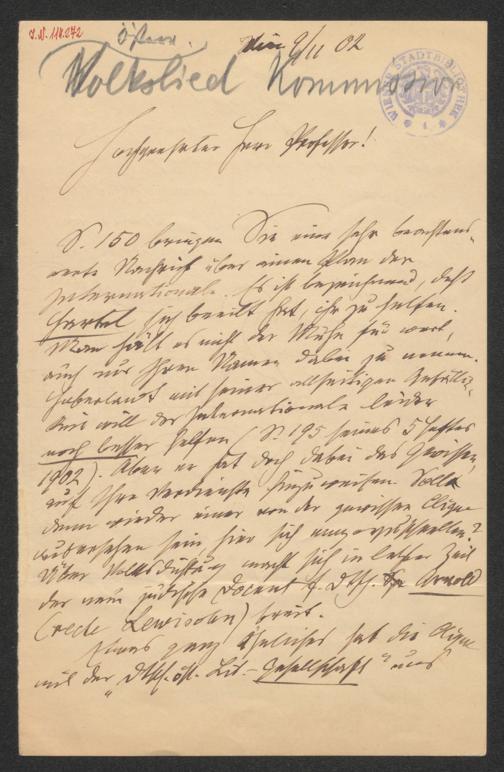 J.N. 118.272
Österr.
Wien 9/11 02
Volkslied Kommission
WIENER STADTBIBLIOTHEK
Hochgeehrter Herr Professor!
S. 150 bringen Sie eine sehr beachtens-
werte Nachricht über einen Plan der
Internationale. Es ist bezeichnend, daß
Hartel sich beeilt hat, ihr zu helfen.
Man hält es nicht der Mühe für wert,
auch nur Ihren Namen dabei zu nennen.
Haberlandt mit seiner allseitigen Gefällig-
keit will der Internationale leider
noch besser helfen (S. 195 seines 5 Jahres
1902). Aber er hat doch dabei das Gewissen,
auf Ihre Verdienste hinzuweisen. Sollte
denn wieder einer von der gewissen Clique
ausersehen sein hier sich
Über Volksdichtung macht sich in letzter Zeit
der neue jüdische Docent f. Dtsch. Dr Arnold
(recte Lewisohn) breit.
Etwas ganz Ähnliches hat die Clique
mit der „Dtsch. öst. Lit.-Gesellschaft"